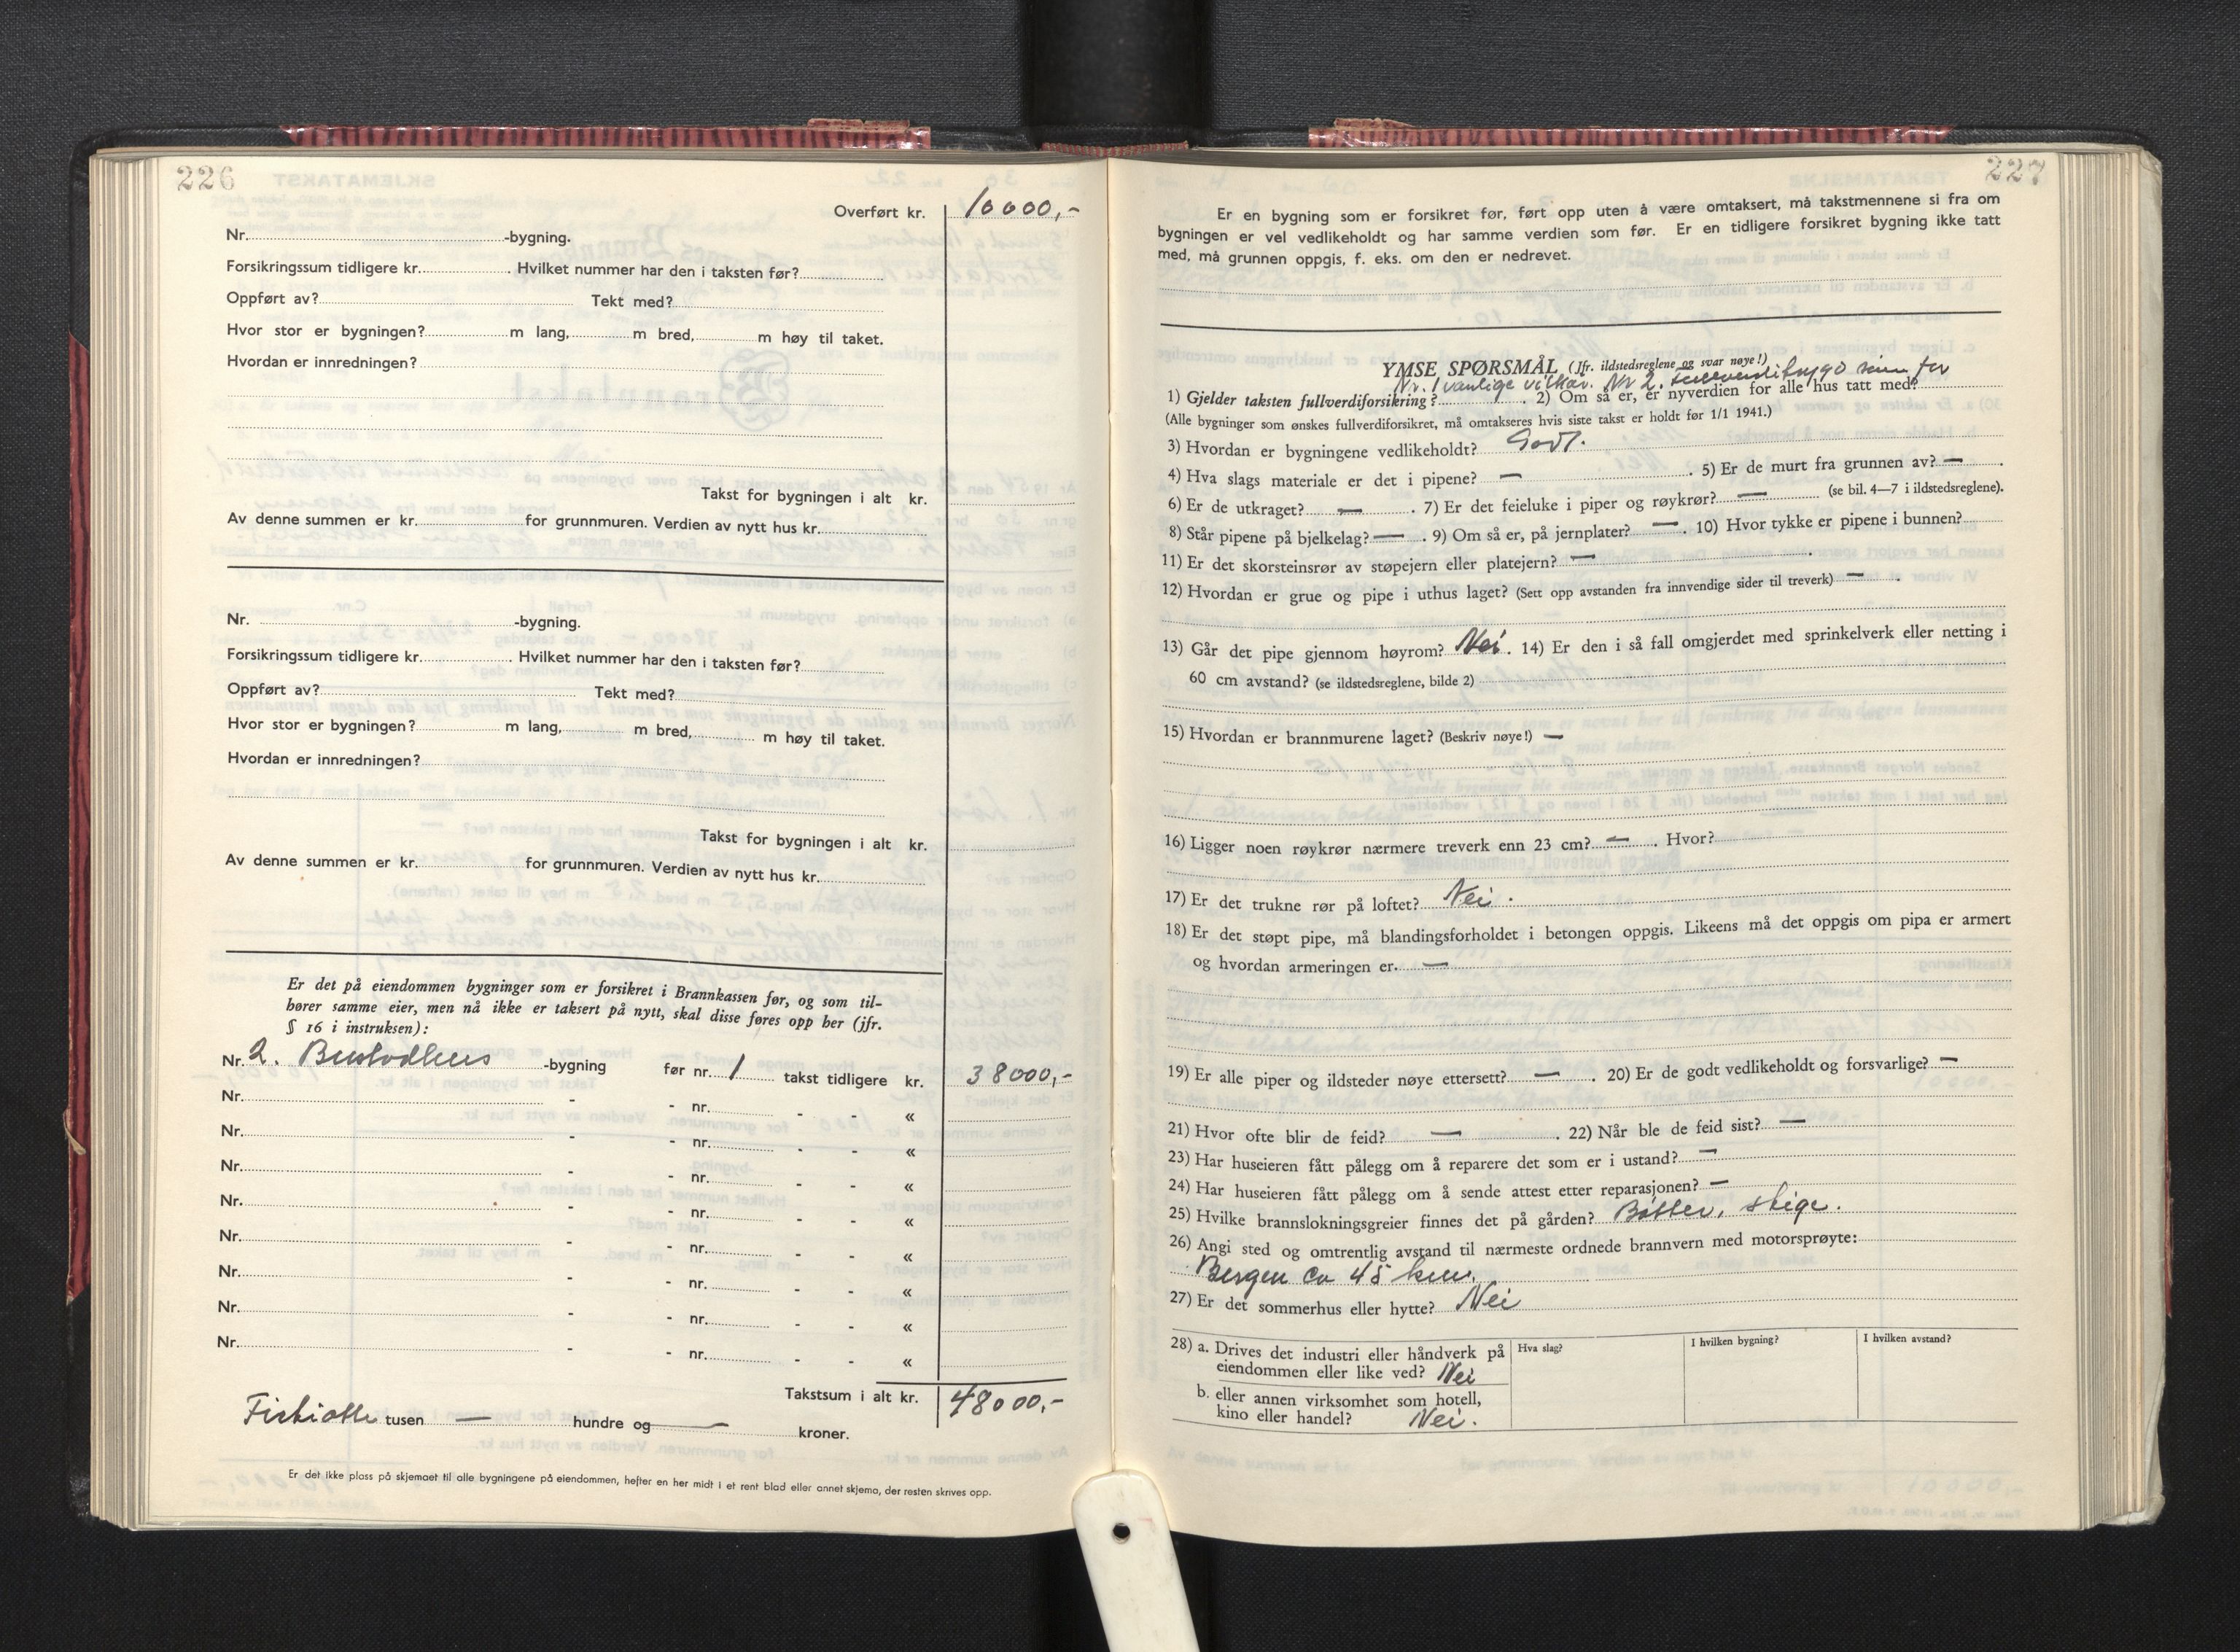 226
Overført kr. 10000,-
Nr. -bygning.
Forsikringssum tidligere kr. . Hvilket nummer har den i taksten før?
Oppført av? Tekt med?
Hvor stor er bygningen? m lang, m bred, m høy til taket.
Hvordan er innredningen?
Takst for bygningen i alt kr.
Av denne summen er kr. for grunnmuren. Verdien av nytt hus kr.
Nr. -bygning.
Forsikringssum tidligere kr. . Hvilket nummer har den i taksten før?
Oppført av? Tekt med?
Hvor stor er bygningen? m lang, m bred, m høy til taket.
Hvordan er innredningen?
Takst for bygningen i alt kr.
Av denne summen er kr. for grunnmuren. Verdien av nytt hus kr.
Er det på eiendommen bygninger som er forsikret i Brannkassen før, og som til-
hører samme eier, men nå ikke er taksert på nytt, skal disse føres opp her (jfr.
§ 16 i instruksen):
Nr. 2. Bustadhus -bygning før nr. 1 takst tidligere kr. 38000,-
Nr. - - nr. - - «
Nr. - - nr. - - «
Nr. - - nr. - - «
Nr. - - nr. - - «
Nr. - - nr. - - «
Nr. - - nr. - - «
Nr. - - nr. - - «
Nr. - - nr. - - «
Takstsum i alt kr. 48000,-
Førtiåtte tusen — hundre og — kroner.
Er det ikke plass på skjemaet til alle bygningene på eiendommen, hefter en her midt i et rent blad eller annet skjema, der resten skrives opp.
227
Er en bygning som er forsikret før, ført opp uten å være omtaksert, må takstmennene si fra om
bygningen er vel vedlikeholdt og har samme verdien som før. Er en tidligere forsikret bygning ikke tatt
med, må grunnen oppgis, f. eks. om den er nedrevet.
YMSE SPØRSMÅL (Jfr. ildstedsreglene og svar nøye!)
Nr. 1 vanlige vilkår. Nr 2. som før
1) Gjelder taksten fullverdiforsikring? . 2) Om så er, er nyverdien for alle hus tatt med?
(Alle bygninger som ønskes fullverdiforsikret, må omtakseres hvis siste takst er holdt før 1/1 1941.)
3) Hvordan er bygningene vedlikeholdt? Godt.
4) Hva slags materiale er det i pipene? — . 5) Er de murt fra grunnen av? — .
6) Er de utkraget? — . 7) Er det feieluke i piper og røykrør? — (se bil. 4—7 i ildstedsreglene).
8) Står pipene på bjelkelag? — . 9) Om så er, på jernplater? — . 10) Hvor tykke er pipene i bunnen?
11) Er det skorsteinsrør av støpejern eller platejern? — .
12) Hvordan er grue og pipe i uthus laget? (Sett opp avstanden fra innvendige sider til treverk) — .
13) Går det pipe gjennom høyrom? Nei. 14) Er den i så fall omgjerdet med sprinkelverk eller netting i
60 cm avstand? (se ildstedsreglene, bilde 2)
15) Hvordan er brannmurene laget? (Beskriv nøye!) —
16) Ligger noen røykrør nærmere treverk enn 23 cm? — . Hvor?
17) Er det trukne rør på loftet? Nei.
18) Er det støpt pipe, må blandingsforholdet i betongen oppgis. Likeens må det oppgis om pipa er armert
og hvordan armeringen er. —
19) Er alle piper og ildsteder nøye ettersett? — . 20) Er de godt vedlikeholdt og forsvarlige? —
21) Hvor ofte blir de feid? — . 22) Når ble de feid sist? —
23) Har huseieren fått pålegg om å reparere det som er i ustand? —
24) Har huseieren fått pålegg om å sende attest etter reparasjonen? —
25) Hvilke brannslokningsgreier finnes det på gården? Bøtter, stige.
26) Angi sted og omtrentlig avstand til nærmeste ordnede brannvern med motorsprøyte:
Bergen ca 45 km.
27) Er det sommerhus eller hytte? Nei
28) a. Drives det industri eller håndverk på Hva slag? I hvilken bygning? I hvilken avstand?
eiendommen eller like ved? Nei
b. eller annen virksomhet som hotell,
kino eller handel? Nei.